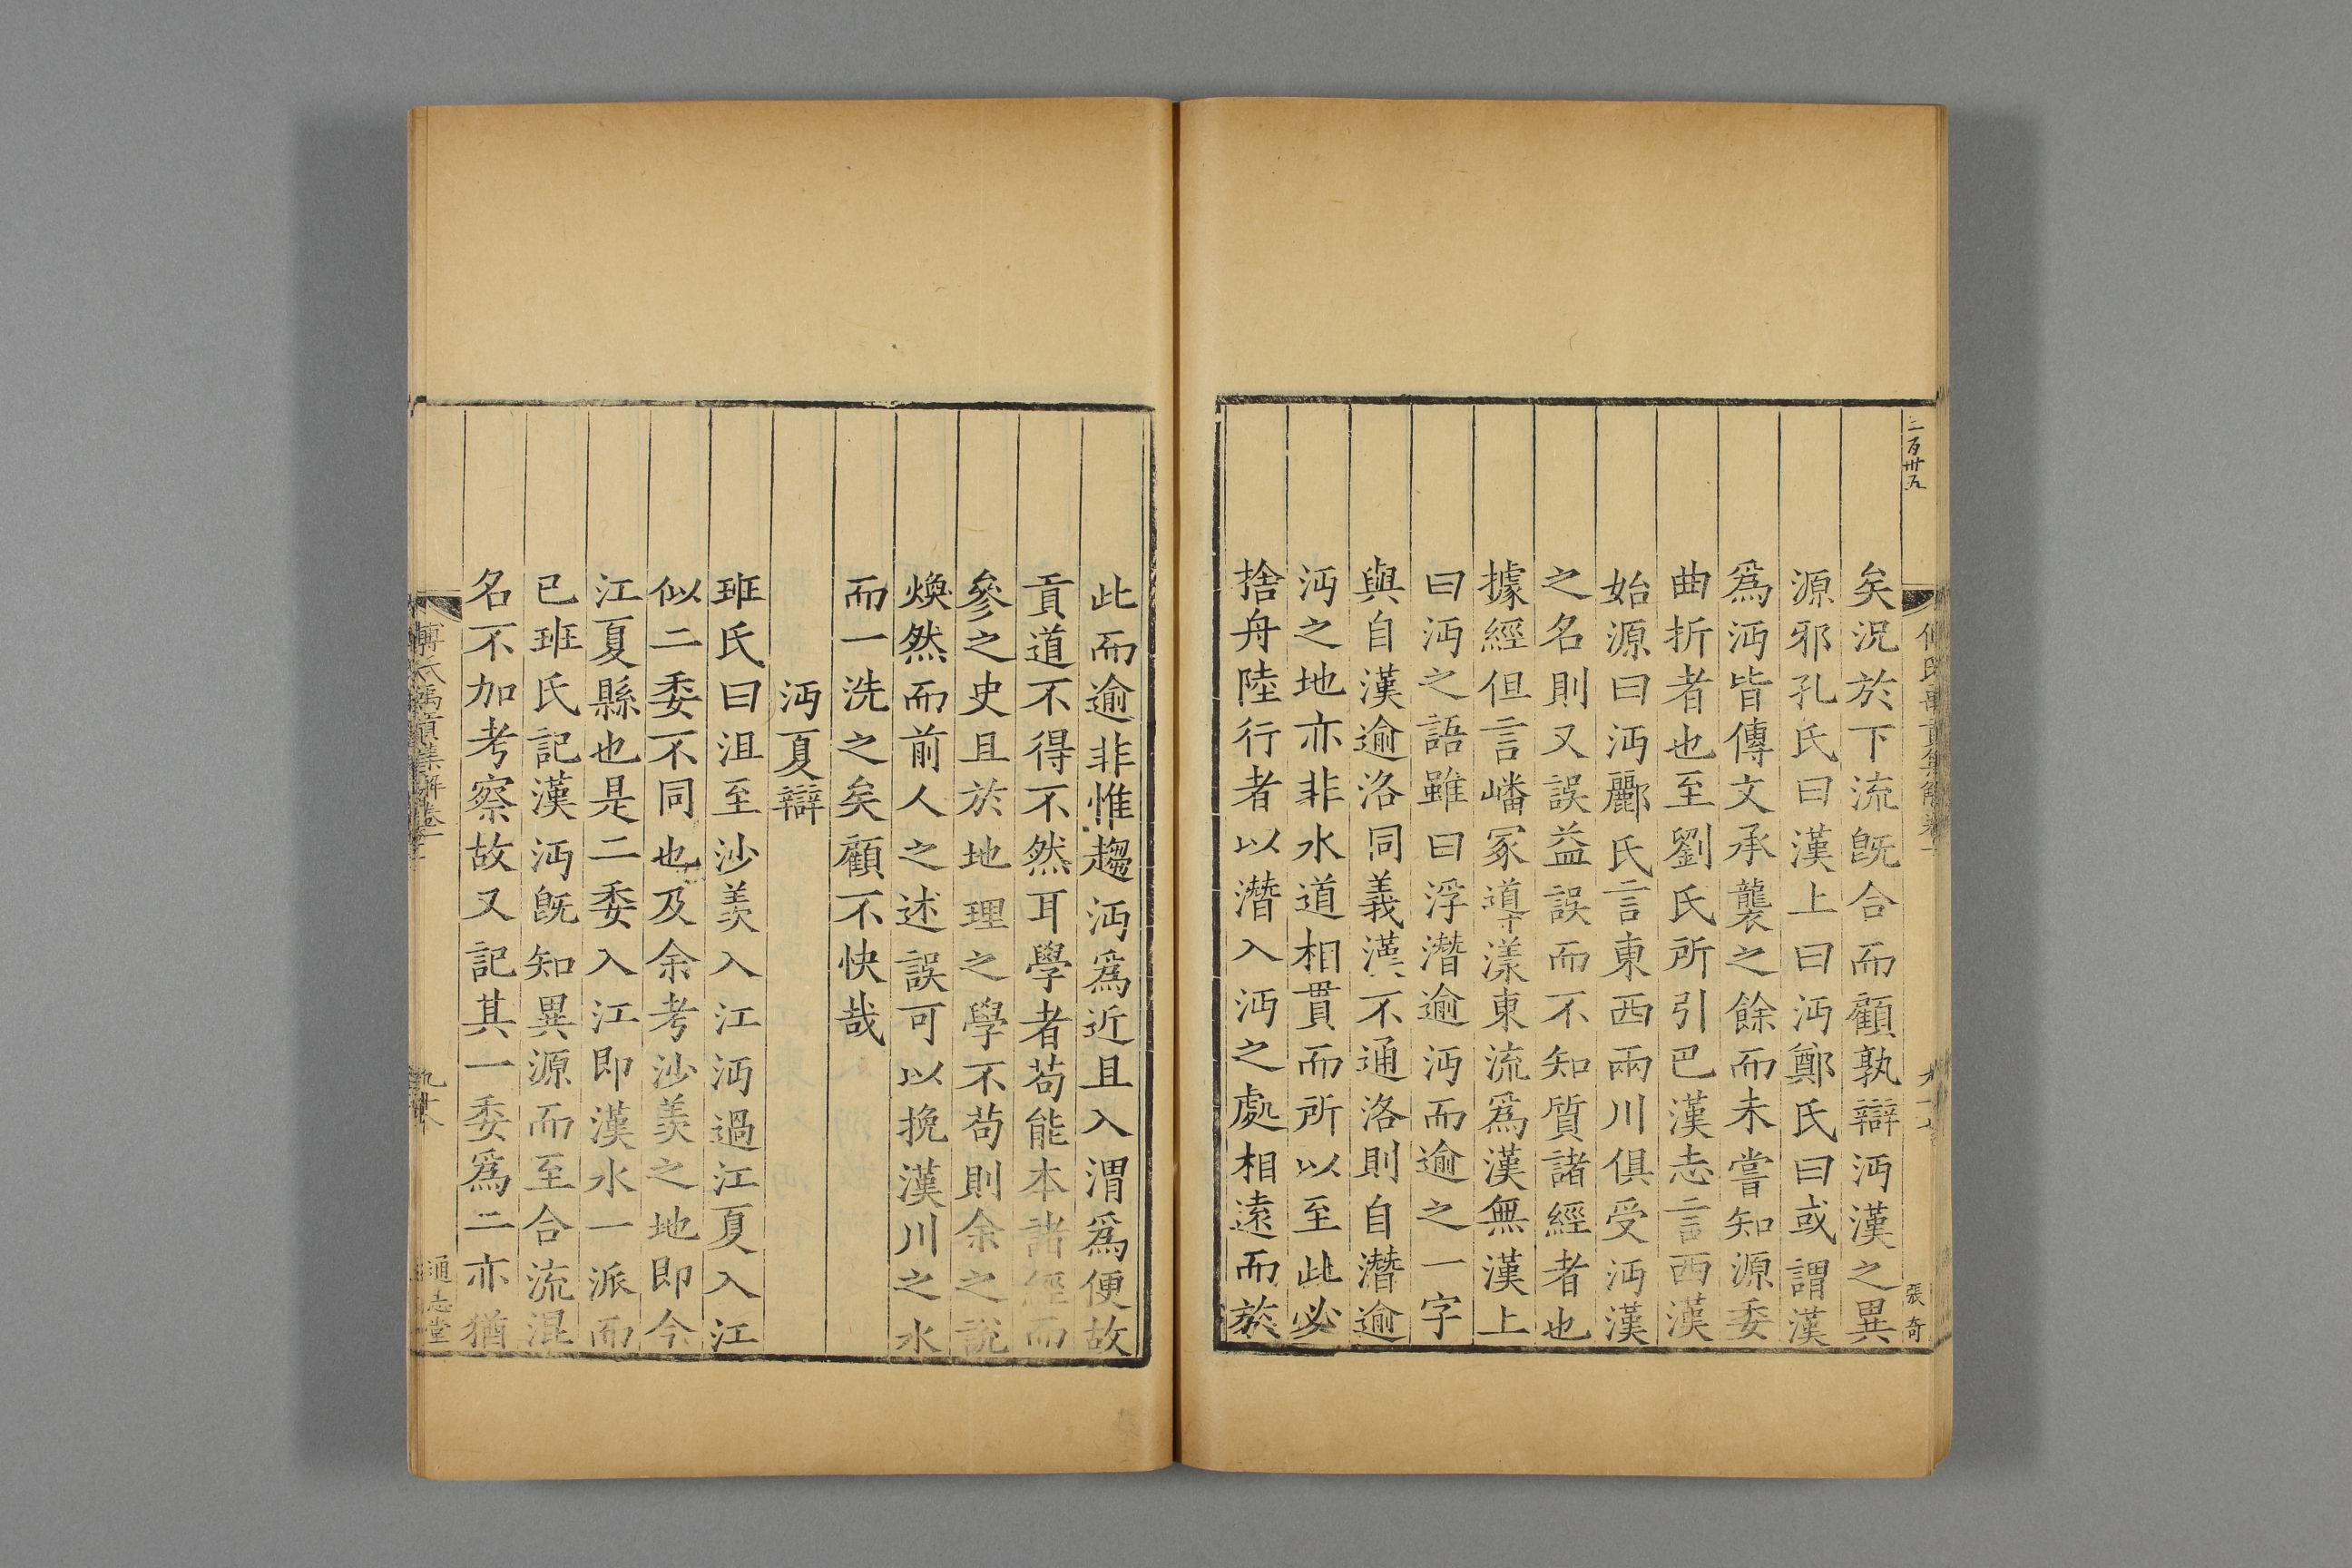 二百卅五
張奇
矣況於下流旣合而顧孰辯沔漢之異
源邪孔氏曰漢上曰沔鄭氏曰或謂漢
爲沔皆傳文承襲之餘而未嘗知源委
曲折者也至劉氏所引巴漢志言西漢
始源曰沔酈氏言東西兩川俱受沔漢
之名則又誤益誤而不知質諸經者也
據經但言嶓冢導漾東流爲漢無漢上
曰沔之語雖曰浮潛逾沔而逾之一字
與自漢逾洛同義漢不通洛則自潛逾
沔之地亦非水道相貫而所以至此必
捨舟陸行者以潛入沔之處相遠而於
此而逾非惟趨沔爲近且入渭爲便故
貢道不得不然耳學者苟能本諸經而
參之史且於地理之學不苟則余之說
煥然而前人之述誤可以挽漢川之水
而一洗之矣顧不快哉
沔夏辯
班氏曰沮至沙羨入江沔過江夏入江
似二委不同也及余考沙羨之地即今
江夏縣也是二委入江即漢水一派而
已班氏記漢沔旣知異源而至合流混
名不加考察故又記其一委爲二亦猶
傅氏禹貢集解卷二
通志堂